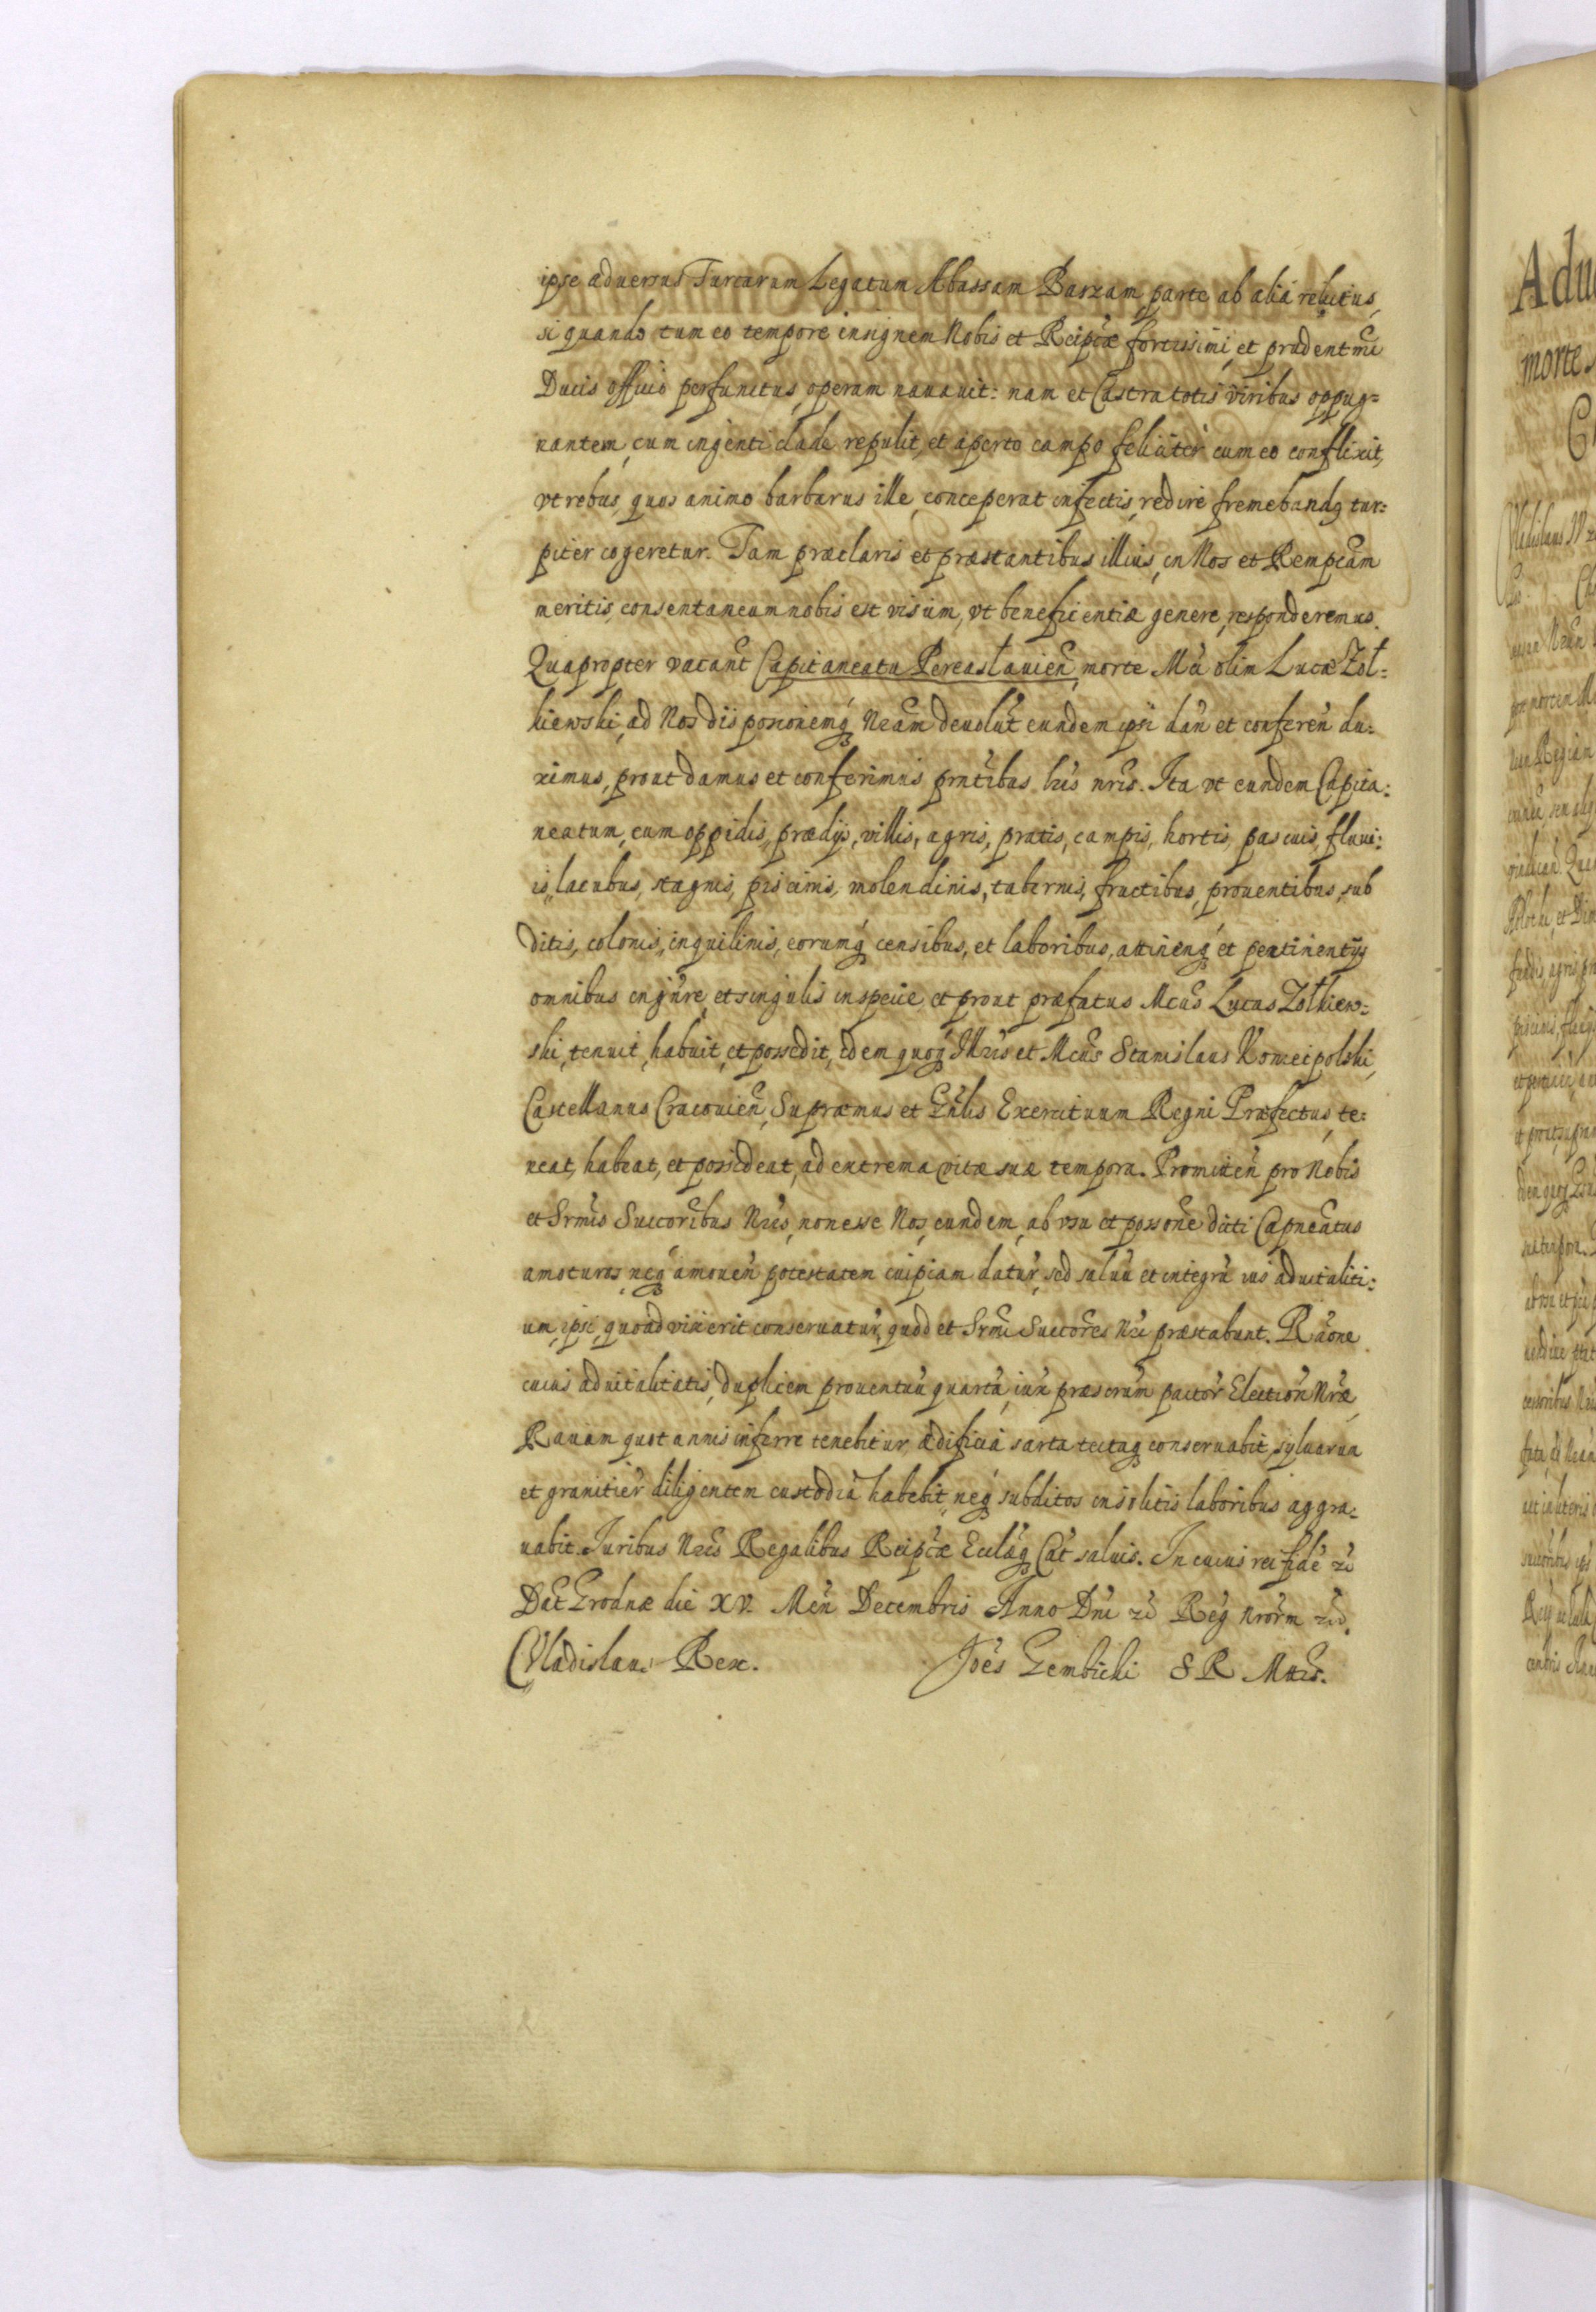 ipse aduersus Turcarum Legatum Abassam Baszam parte ab aliá relictus,
si quando tum eo tempore insignem Nobis et Reipcæ fortissimi, et prudentmi
Ducis officio perfunctus, operam nauauit: nam et Castra totis viribus oppug=
nantem, cum ingenti clade repulit, et aperto campo feliciter cum eo conflixit,
vt rebus, quas animo barbarus ille conceperat infectis, redire fremebundq tur:
piter cogeretur. Tam præclaris et præstantibus illius, in Nos et Rempcam
meritis, consentaneum nobis est visum, vt beneficentiæ genere, responderemus.
Quapropter vacant Capitaneatu Pereasłauien, morte Mci olim Lucæ Zoł=
kiewski, ad Nos disposicionemq Nram deuolut eundem ipsi dan et conferen du:
ximus, prout damus et conferimus prntibus lris nris. Ita vt eundem Capita:
neatum, cum oppidis, prædijs, villis, agris, pratis, campis, hortis, pascuis, fluui:
is, lacubus, stagnis, piscinis, molendinis, tabernis, fructibus, prouentibus, sub
ditis, colonis, inquilinis, eorumq censibus, et laboribus, attinenq et pertinentijs
omnibus in genere, et singulis in specie et prout præfatus Mcus Lucas Zołkiew=
ski, tenuit, habuit, et possedit, idem quoq Illris et Mcus Stanislaus Koniecpolski,
Castellanus Cracouien, Supræmus et Gnlis Exercituum Regni Præfectus, te:
neat, habeat, et possideat, ad extrema vitæ suæ tempora. Promitten pro Nobis
et Srmis Succoribus Nris, non esse Nos, eundem, ab vsu et possone dicti Capneatus
amoturos, neq amouen potestatem cuipiam datur, sed saluu et integru ius aduitaliti:
um, ipsi, quoad vixerit conseruatur, quod et Srmi Succores Nri præstabunt. Raone
cuius aduitalitatis, duplicem prouentuu quarta, iux præscrum pactor Election Nræ
Rauam quotannis inferre tenebitur, ædificia sarta tectaq conseruabit, syluarum
et granitier diligentem custodia habebit, neq subditos insolitis laboribus aggra:
uabit. Iuribus Nris Regalibus Reipcæ Ecclæq Cat saluis. In cuius rei fide
Dat Grodnæ die XV. Men Decembris Anno Dni Reg nrorm
Vladislaus Rex. Joes Gembicki S R Mttis.